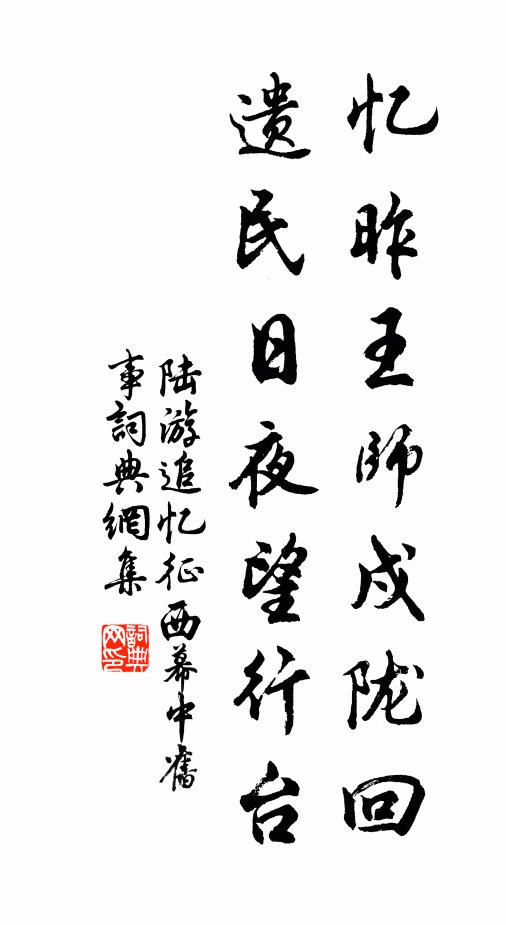 忆昨王师戍陇回
遗民日夜望行台
陆游追忆征西幕中旧
事詞典網集
詞典网印